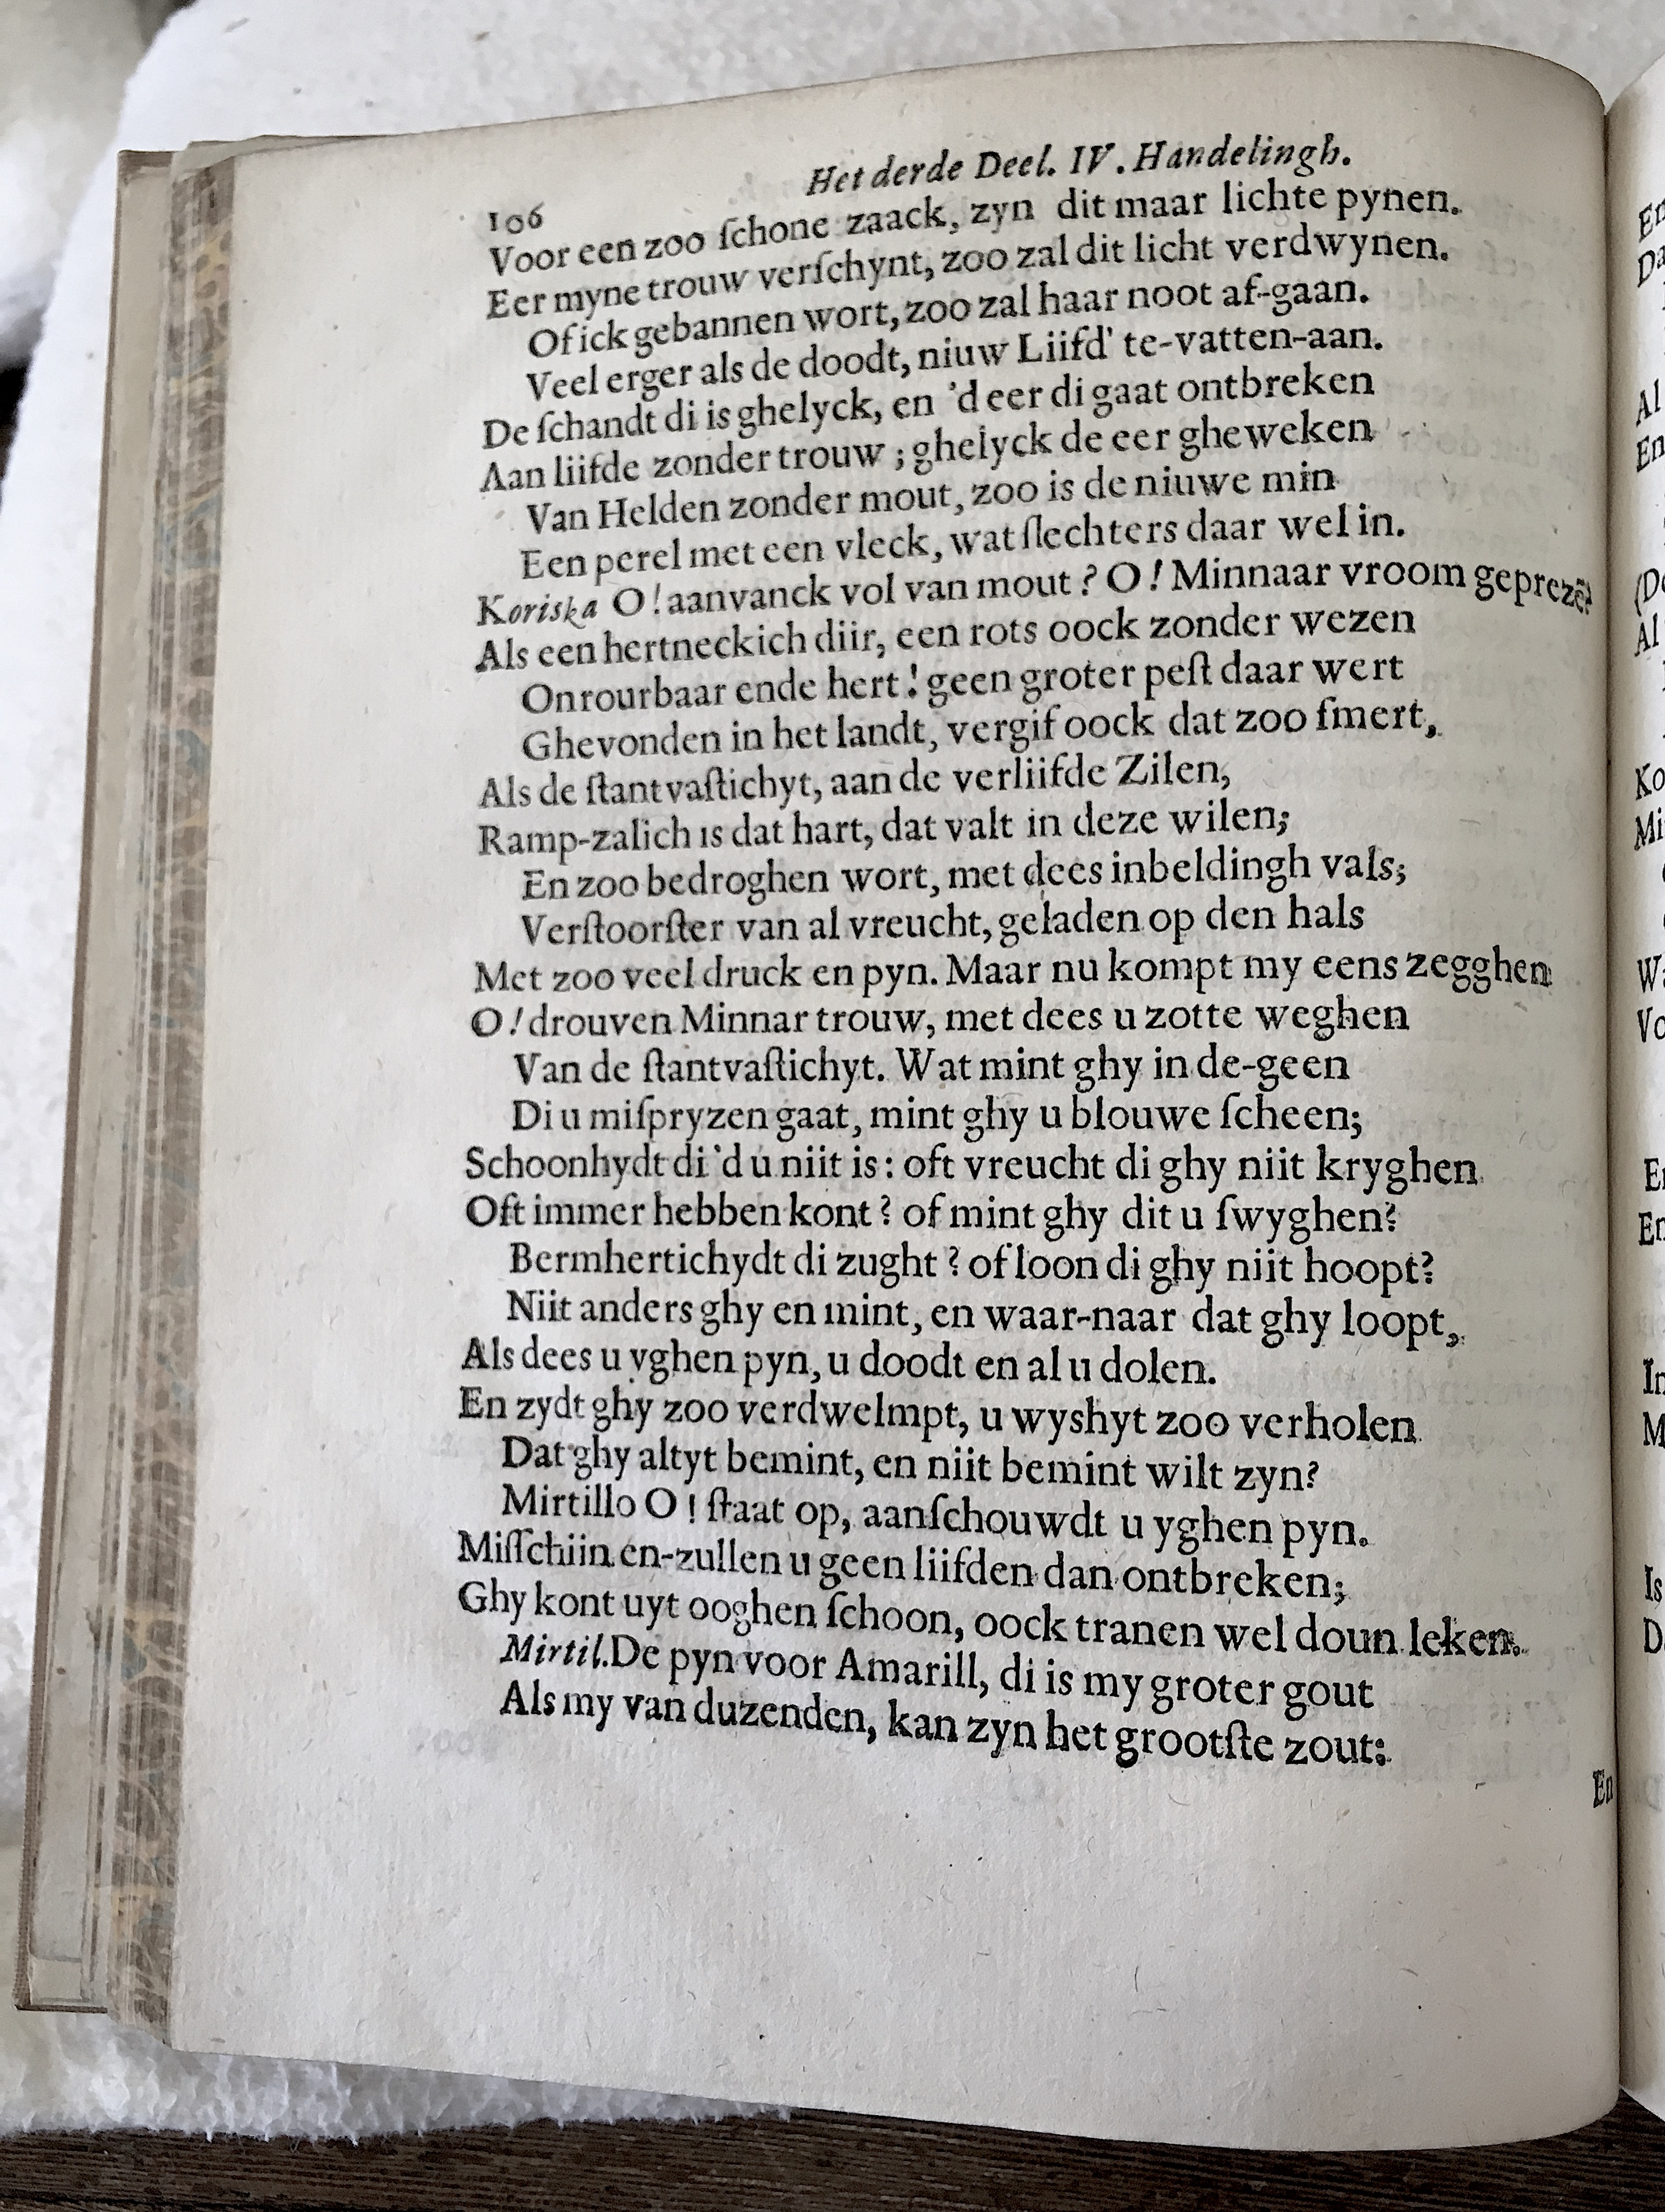 Het derde Deel. IV. Handelingh.
106
Voor een zoo ſchone zaack, zyn dit maar lichte pynen.
Eer myne trouw verſchynt, zoo zal dit licht verdwynen.
Of ick gebannen wort, zoo zal haar noot af-gaan.
Veel erger als de doodt, niuw Liifd' te-vatten-aan.
De ſchandt di is ghelyck, en 'd eer di gaat ontbreken
Aan liifde zonder trouw ; ghelyck de eer gheweken
Van Helden zonder mout, zoo is de niuwe min
Een perel met een vleck, wat ſlechters daar wel in.
Koriska O! aanvanck vol van mout ? O! Minnaar vroom geprezẽ?
Als een hertneckich diir, een rots oock zonder wezen
Onrourbaar ende hert! geen groter peſt daar wert
Ghevonden in het landt, vergif oock dat zoo ſmert,
Als de ſtantvaſtichyt, aan de verliifde Zilen,
Ramp-zalich is dat hart, dat valt in deze wilen;
En zoo bedroghen wort, met dees inbeldingh vals;
Verſtoorſter van al vreucht, geladen op den hals
Met zoo veel druck en pyn. Maar nu kompt my eens zegghen
O! drouven Minnar trouw, met dees u zotte weghen
Van de ſtantvaſtichyt. Wat mint ghy in de-geen
Di u miſpryzen gaat, mint ghy u blouwe ſcheen;
Schoonhydt di 'd u niit is: oft vreucht di ghy niit kryghen
Oft immer hebben kont ? of mint ghy dit u ſwyghen?
Bermhertichydt di zught ? of loon di ghy niit hoopt?
Niit anders ghy en mint, en waar-naar dat ghy loopt,
Als dees u yghen pyn, u doodt en al u dolen.
En zydt ghy zoo verdwelmpt, u wyshyt zoo verholen
Dat ghy altyt bemint, en niit bemint wilt zyn?
Mirtillo O! ſtaat op, aanſchouwdt u yghen pyn.
Miſſchiin en-zullen u geen liifden dan ontbreken;
Ghy kont uyt ooghen ſchoon, oock tranen wel doun leken.
Mirtil. De pyn voor Amarill, di is my groter gout
Als my van duzenden, kan zyn het grootſte zout:
En
En
Da
Al
En
(De
Al
Ko
Mi
Wa
Vo
En
En
In
M
Is
D